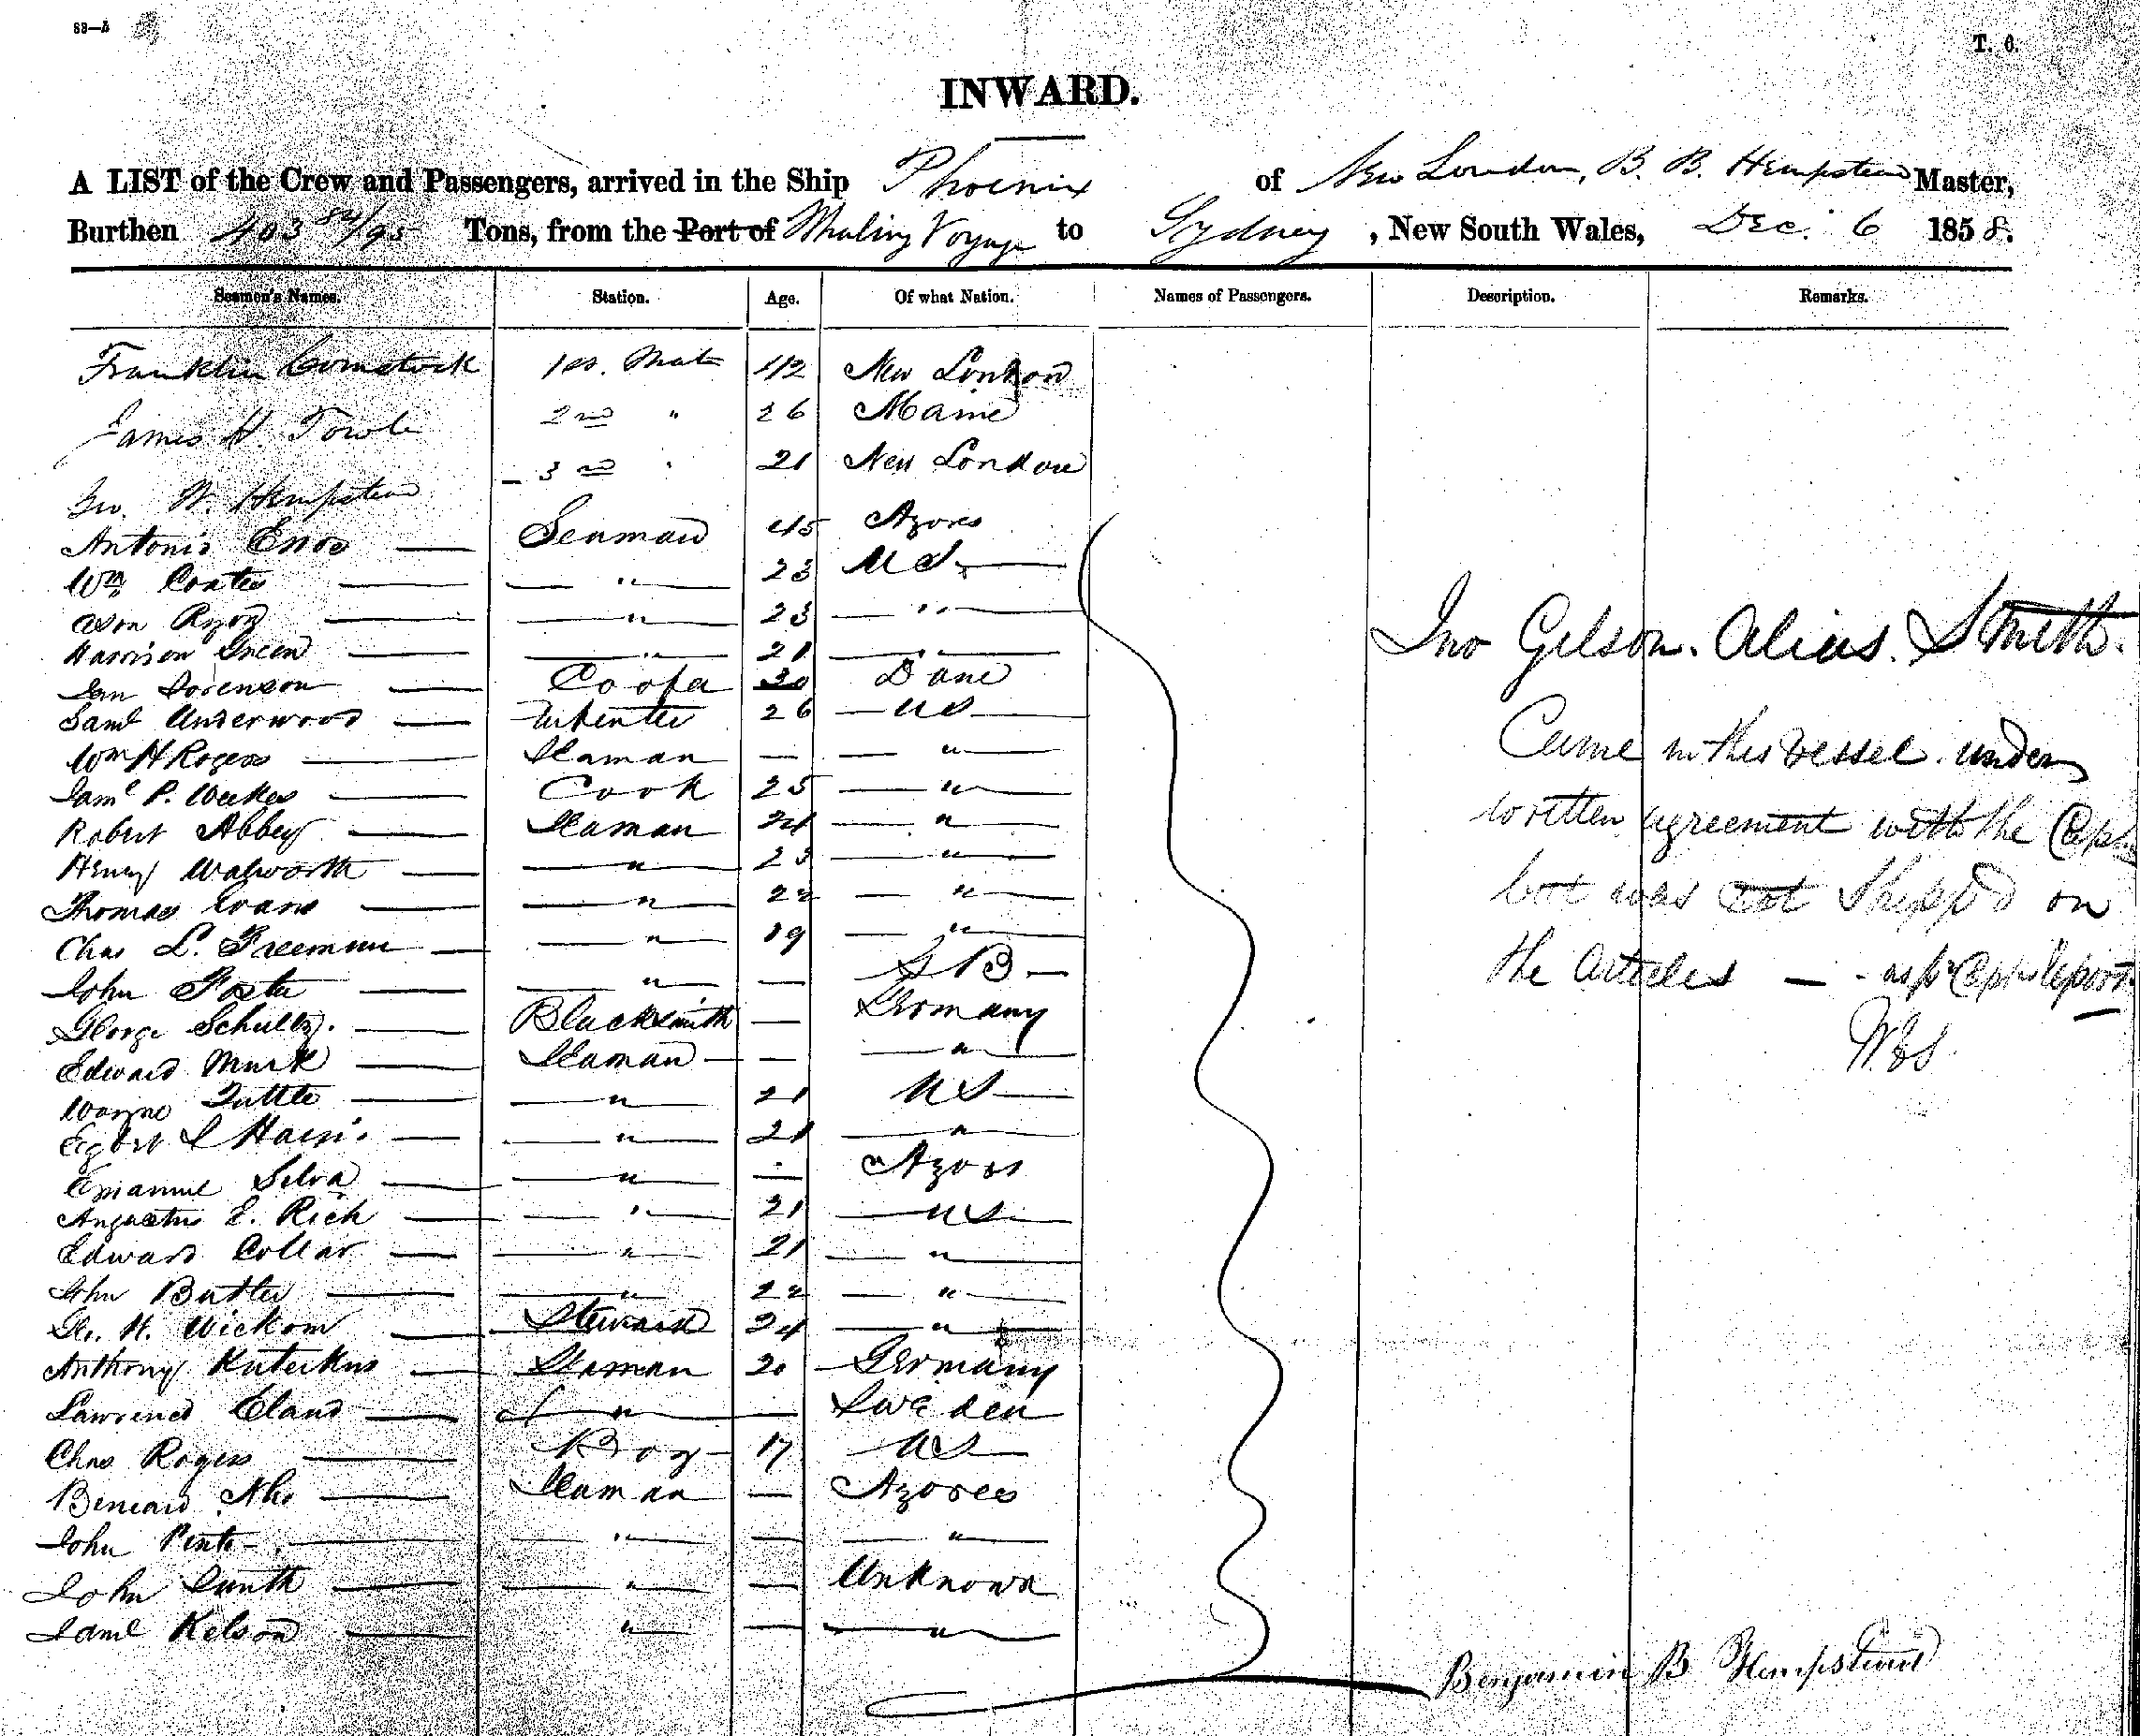 88—A
T. 6.
INWARD.
A LIST of the Crew and Passengers, arrived in the Ship Phoenix of New London, B. B. Hempstead Master,
Burthen 403 84/95 Tons, from the Port of Whaling Voyage to Sydney, New South Wales, Dec. 6 1858.
Seamen's Names. Station. Age. Of what Nation. Names of Passengers. Description. Remarks.
Franklin Comstock 1st. Mate 42 New London
James H. Towle 2nd " 26 Maine
Geo. W. Hempstead 3rd " 21 New London
Antonio Enos — Seaman 45 Azores
Wm Coates — " 23 US —
— " 23 — "
Harrison Green — " 21 — "
Jno Gilson. Alias. Smith.
Jan Sorenson — Cooper 30 Dane
Saml Underwood — 26 — US —
Wm H Rogers — Seaman — — "
Came in this vessel under
Saml P. Weekes — Cook 25 — "
Robert Abbey — Seaman 24 — "
written agreement with the Capt
Henry Walworth — " 23 — "
Thomas Evans — " 22 — "
but was not Shipp'd on
Chas L. Freeman — " 19 — "
John Foster — " — B —
the Articles — - as pr Capts report
George Schultz. — Blacksmith — Germany
Edward Murk — Seaman — — "
Wayne Tuttle — " 21 US —
Egbert S Harris — " 21 — "
Emanuel Silva — " — Azores
Augustus E. Rich — " 21 — US —
Edward Collar — " 21 — "
John Butler — " 22 — "
H. Wickom — Steward 24 — "
Anthony Kuterkus — Seaman 20 — Germany
Lawrence Eland — " — Sweden
Chas Rogers — Boy — 17 — US —
Seaman — Azores
John Pinto — " — — "
John Smith — " — Unknown
Saml Kelson — " — — "
Benjamin B Hempstead